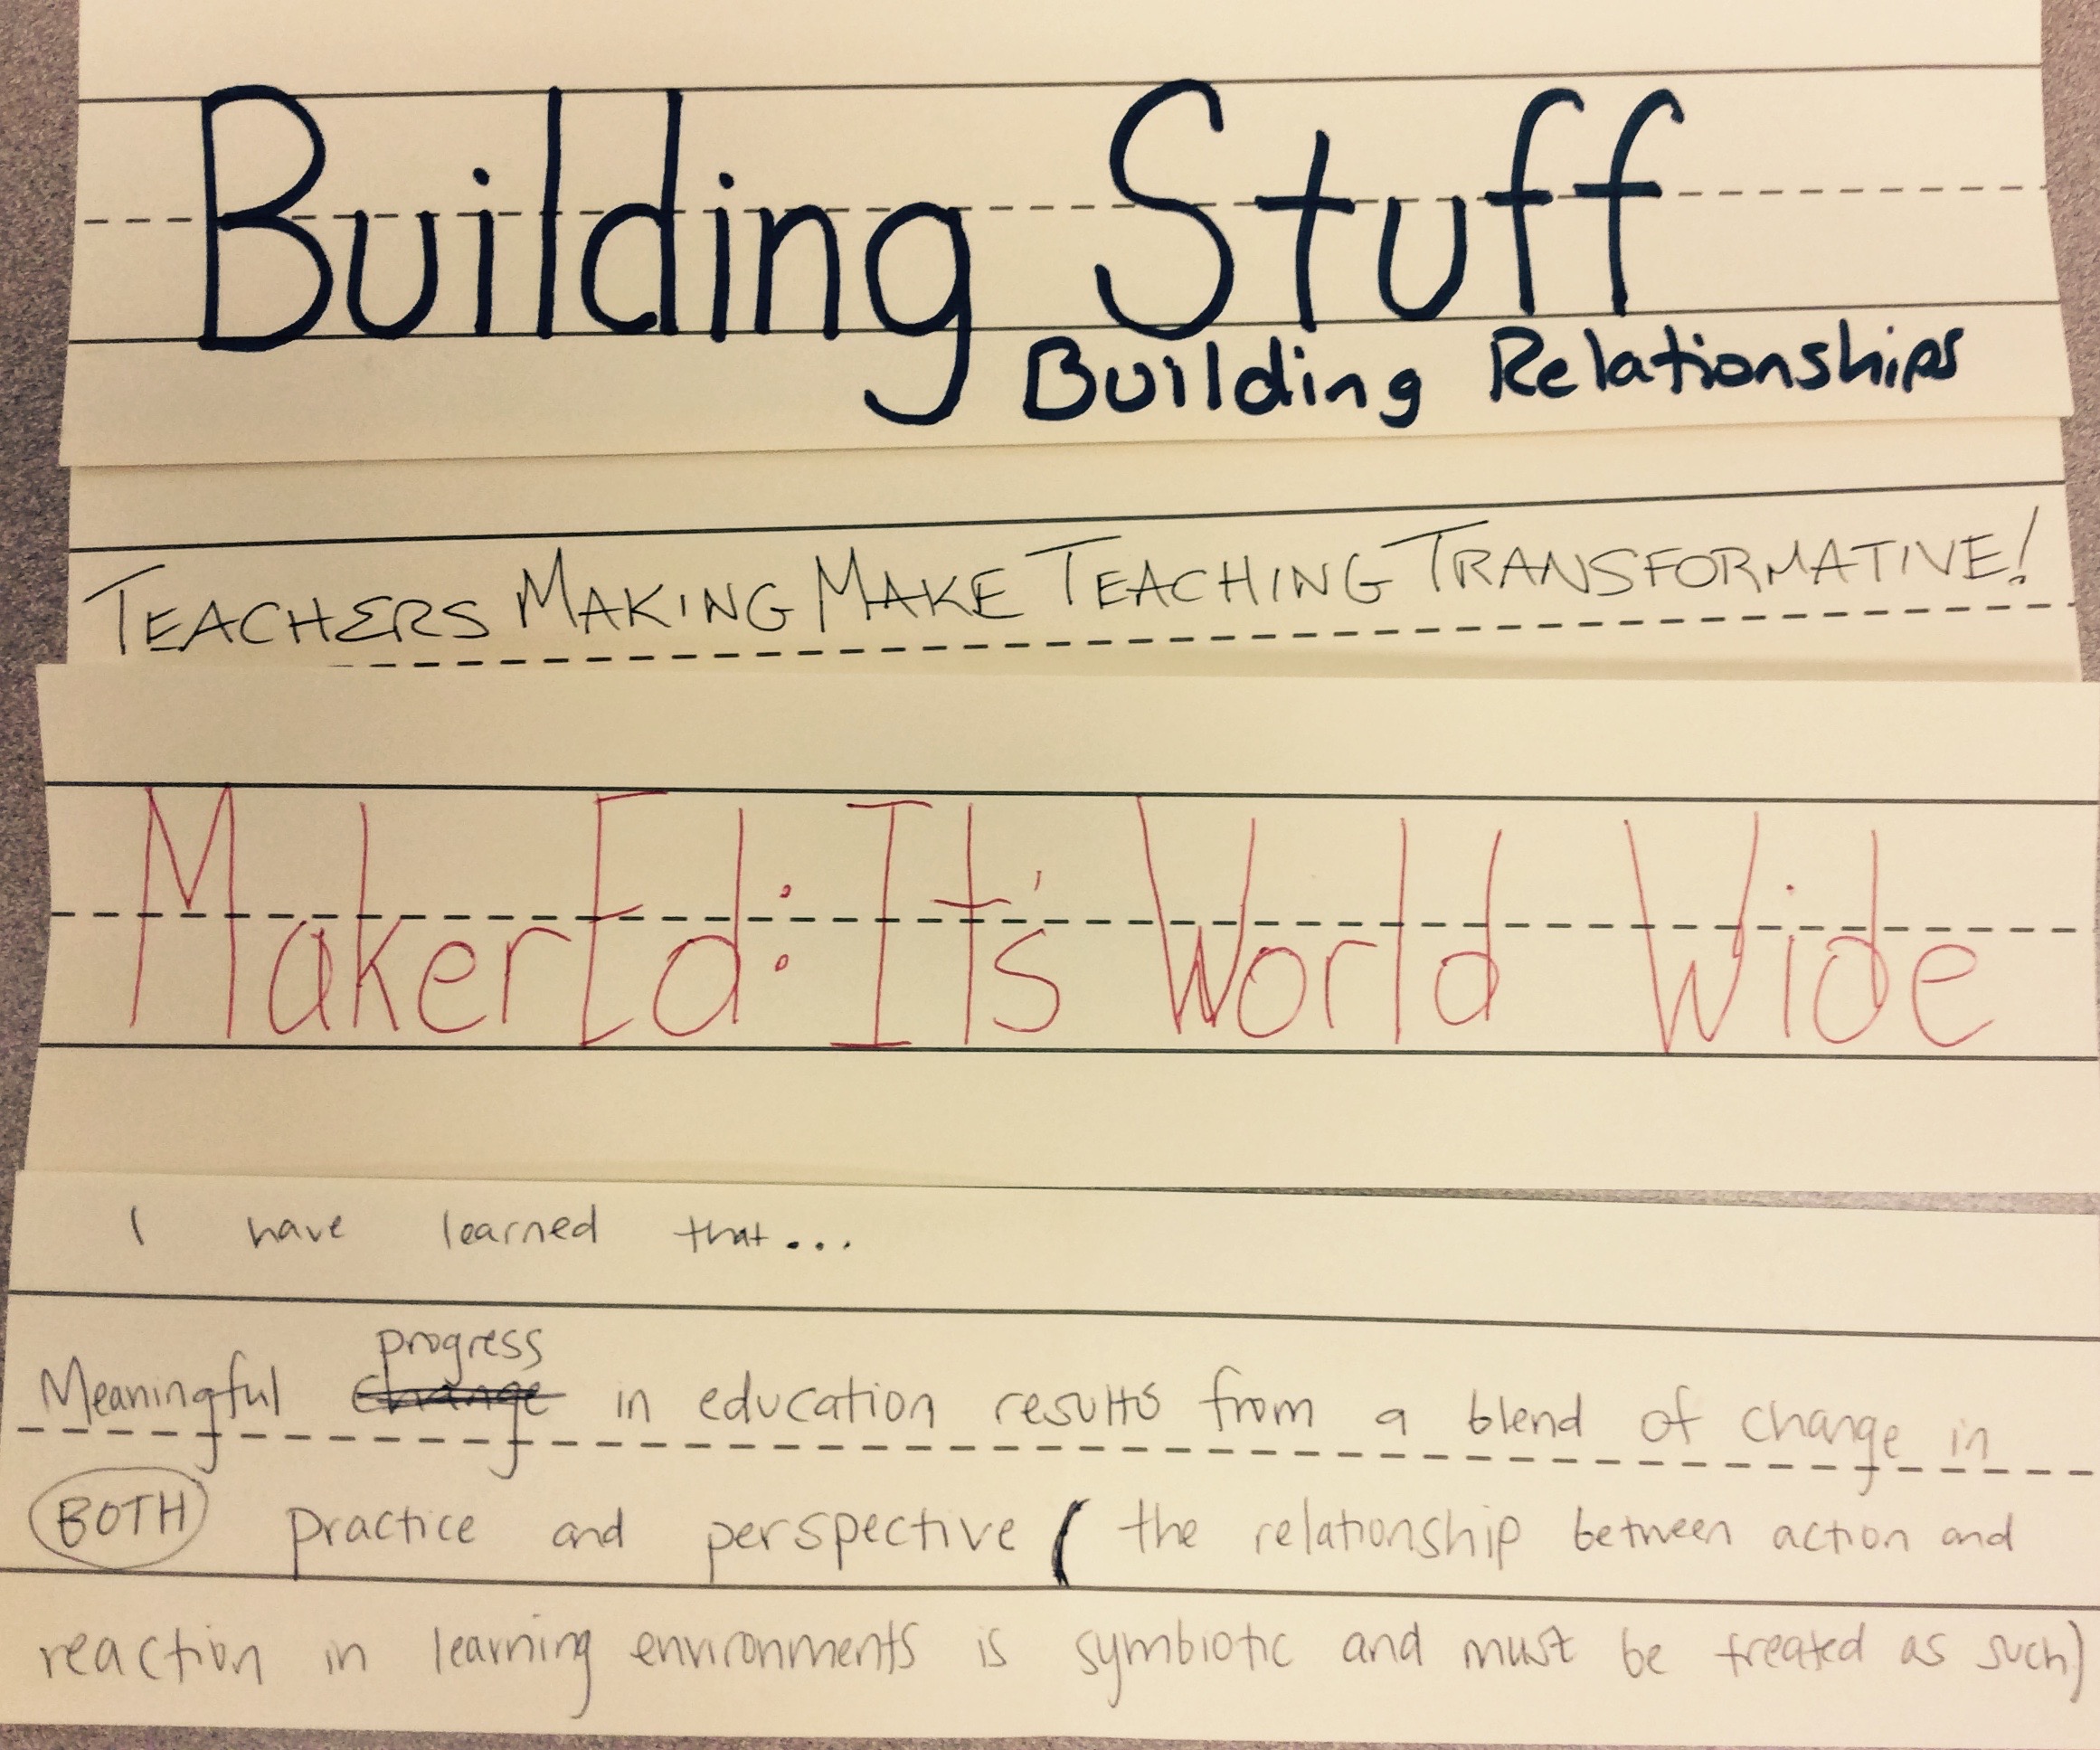 Building Stuff
Building Relationships
TEACHERS MAKING MAKE TEACHING TRANSFORMATIVE!
MakerEd: It's World Wide
I have learned that...
progress
Meaningful change in education results from a blend of change in
BOTH practice and perspective ( the relationship between action and
reaction in learning environments is symbiotic and must be treated as such)